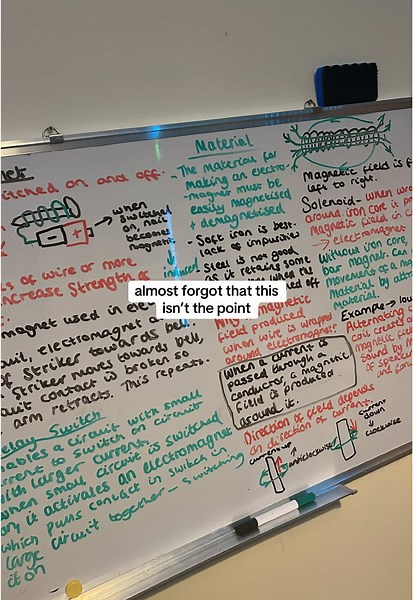 net
itched on and off.
when
switched
on, nail
becomes
magnetic.
ls of wire or more
ncrease strength of
magnet used in ele
electromagnet
of striker towards bell
striker moves towards bell,
contact is broken so
arm retracts. This repeats.
elay Switch
nables a circuit with small
rrent to switch on circuit
with larger current,
when small circuit is switched
on it activates an electromagnet
which pulls contact in switch in
large circuit together - switching
it on
Material
- The material for
making an electro-
magnet must be
easily magnetised
+ demagnetised
- Soft iron is best.
lack of impurities
- Steel is not good
as it retains some
when
switched off
almost forgot that this
isn't the point
Why?
magnetic
field produced
when wire is wrapped
around electromagnet
When a current is
passed through a
conductor a magnetic
field is produced
around it.
Direction of field depends
on direction of current.
current
anticlockwise
current
down
clockwise
Magnetic field is f
left to right.
Solenoid - When wire
around iron core it pro
magnetic field in c
→ electromagnet
Without iron core,
bar magnet. Can
movement of a ma
material by attra
material.
Example →
Alternating
coil creates
magnetic
sound by
of